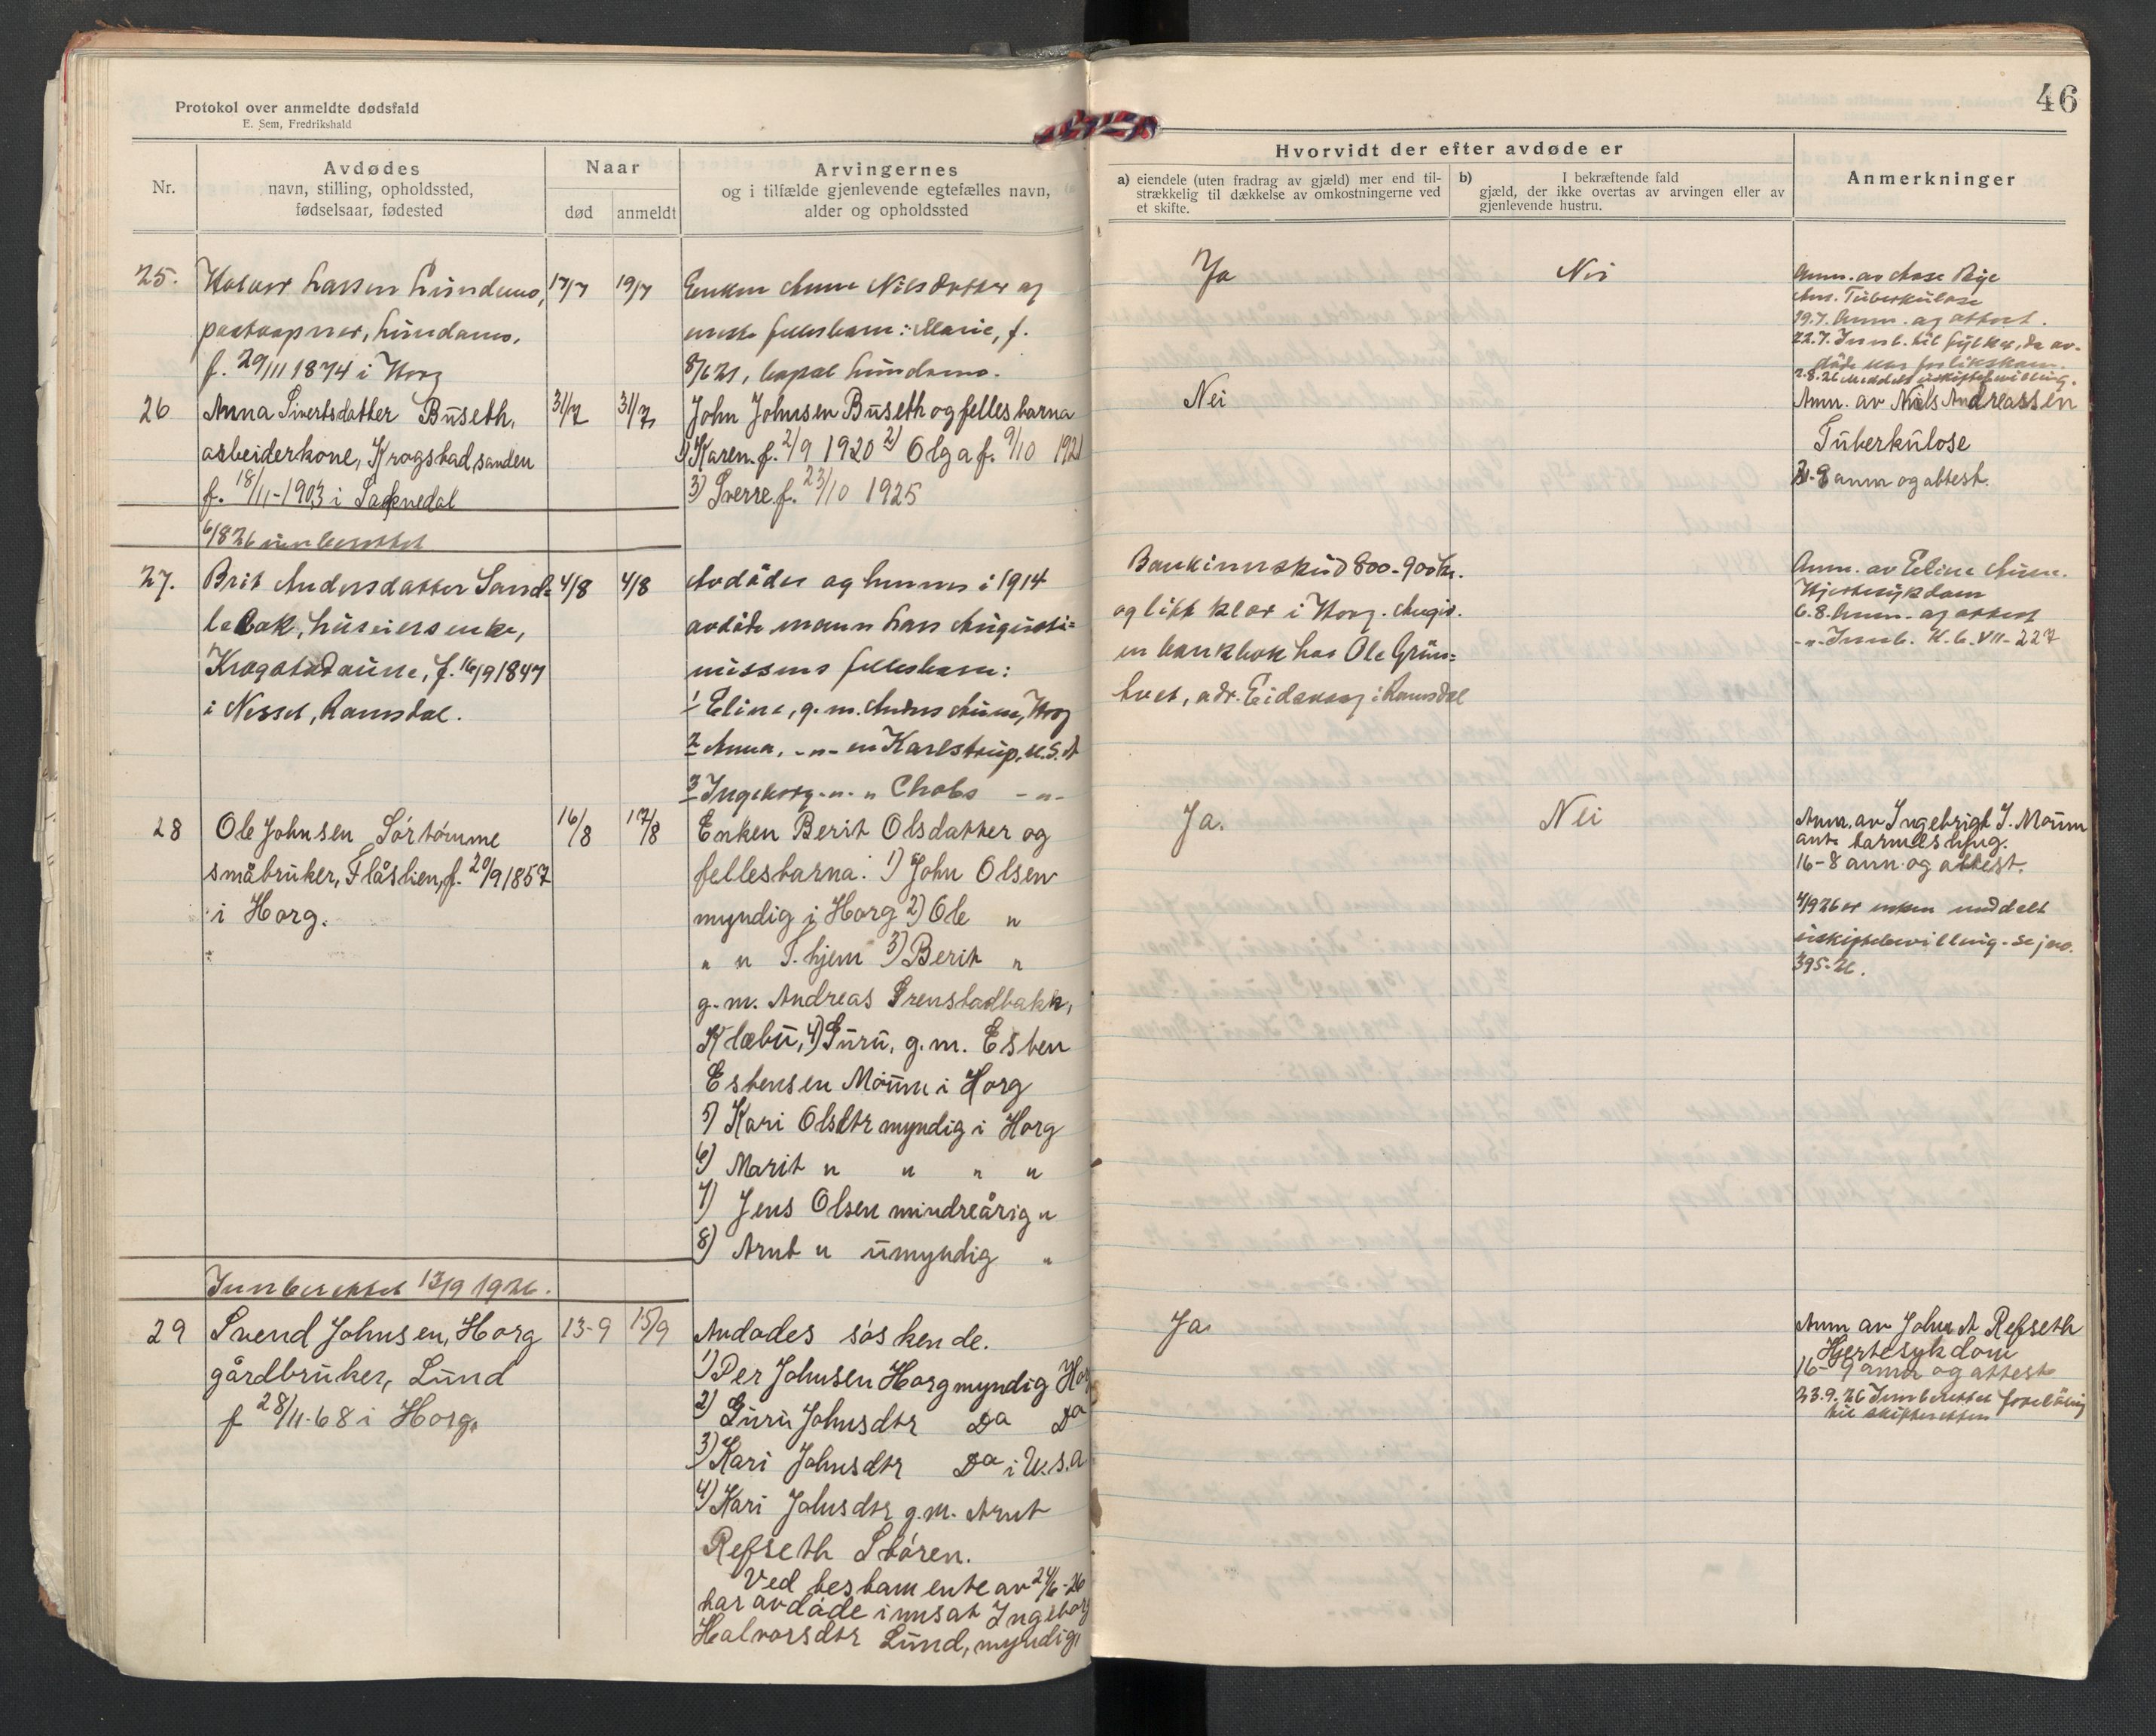 Protokol over anmeldte dødsfald
E. Sem, Fredrikshald
46
Nr.
Avdødes
navn, stilling, opholdssted,
fødselsaar, fødested
Naar
død
anmeldt
Arvingernes
og i tilfælde gjenlevende egtefælles navn,
alder og opholdssted
Hvorvidt der efter avdøde er
a) eiendele (uten fradrag av gjæld) mer end til-
strækkelig til dækkelse av omkostningerne ved
et skifte.
b) I bekræftende fald
gjæld, der ikke overtas av arvingen eller av
gjenlevende hustru.
Anmerkninger
25.
Larsen Lundamo,
postaapner, Lundamo,
f. 29/11 1874 i Horg
17/7
19/7
Enken Anne Nilsdatter og
eneste fellesbarn: Marie, f.
8/6 21, bopæl Lundamo.
Ja
Nei
Anm. av Aase Bye
Tuberkulose
19.7. Anm. og attest.
22.7. Innb. til fylket, da av-
døde
2.8.26 Meddelt uskiftebevilling.
26
Anna Sivertsdatter Buseth,
arbeiderkone, Krogstadsanden
f. 18/11-1903 i Soknedal
6/8 26 innberettet
31/7
31/7
John Johnsen Buseth og fellesbarna
1) Karen. f. 2/9 1920 2) Olga f. 9/10 1921
3) Sverre f. 23/10 1925
Nei
Anm. av Niels Andreassen
Tuberkulose
31-8 anm og attest.
27.
Brit Andersdatter Sand-
lebak, huseierenke,
Krogstadaune, f. 16/9 1847
i Nesset, Romsdal.
4/8
4/8
Avdødes og hennes i 1914
avdøde mann Lars Augusti=
nussens fellesbarn:
1 Eline, g.m. Anders Aune, Horg
2 Anna, -"- en Karlstrup, U.S.A
3 Ingeborg -"- " Chobs -"-
Bankinnskud 800-900 kr.
og litt klær i Horg. Angiv.
en bankbok hos Ole Grün-
tvet, adr. Eidsvaag i Romsdal
Anm. av Eline Aune.
Hjertesykdom
6.8. Anm. og attest
-"- Innb. K.b. VII-227
28
Ole Johnsen Sörtömme
småbruker, Flåslien, f. 20/9 1857
i Horg.
Innberettet 13/9 1926.
16/8
17/8
Enken Berit Olsdatter og
fellesbarna: 1) John Olsen
myndig i Horg 2) Ole "
" " T.hjem 3) Berit "
g.m. Andreas Grenstadbakk,
Klæbu, 4) Guru, g.m. Esten
Estensen Möum i Horg
5) Kari Olsdtr myndig i Horg
6) Marit " " " "
7) Jens Olsen mindreårig "
8) Arnt " umyndig "
Ja.
Nei
Anm. av Ingebrigt J. Möum
ant. tarmeslyng.
16-8 anm og attest.
4/9 26 er enken meddelt
uskiftebevilling. Se jno.
395-26.
29
Svend Johnsen, Horg
gårdbruker, Lund
f 28/11-68 i Horg.
13-9
15/9
Avdødes søskende.
1) Per Johnsen Horg myndig Horg
2) Guru Johnsdtr Do Do
3) Kari Johnsdtr Do i U.S.A
4) Kari Johnsdtr g.m. Arnt
Refseth Stören.
Ved testamente av 24/6-26
har avdøde innsat Ingeborg
Halvorsdtr Lund, myndig,
Ja.
Anm av John A Refseth
Hjertesykdom
16-9 anm og attest
23.9.26 Innberettet foreløbig
til skifteretten